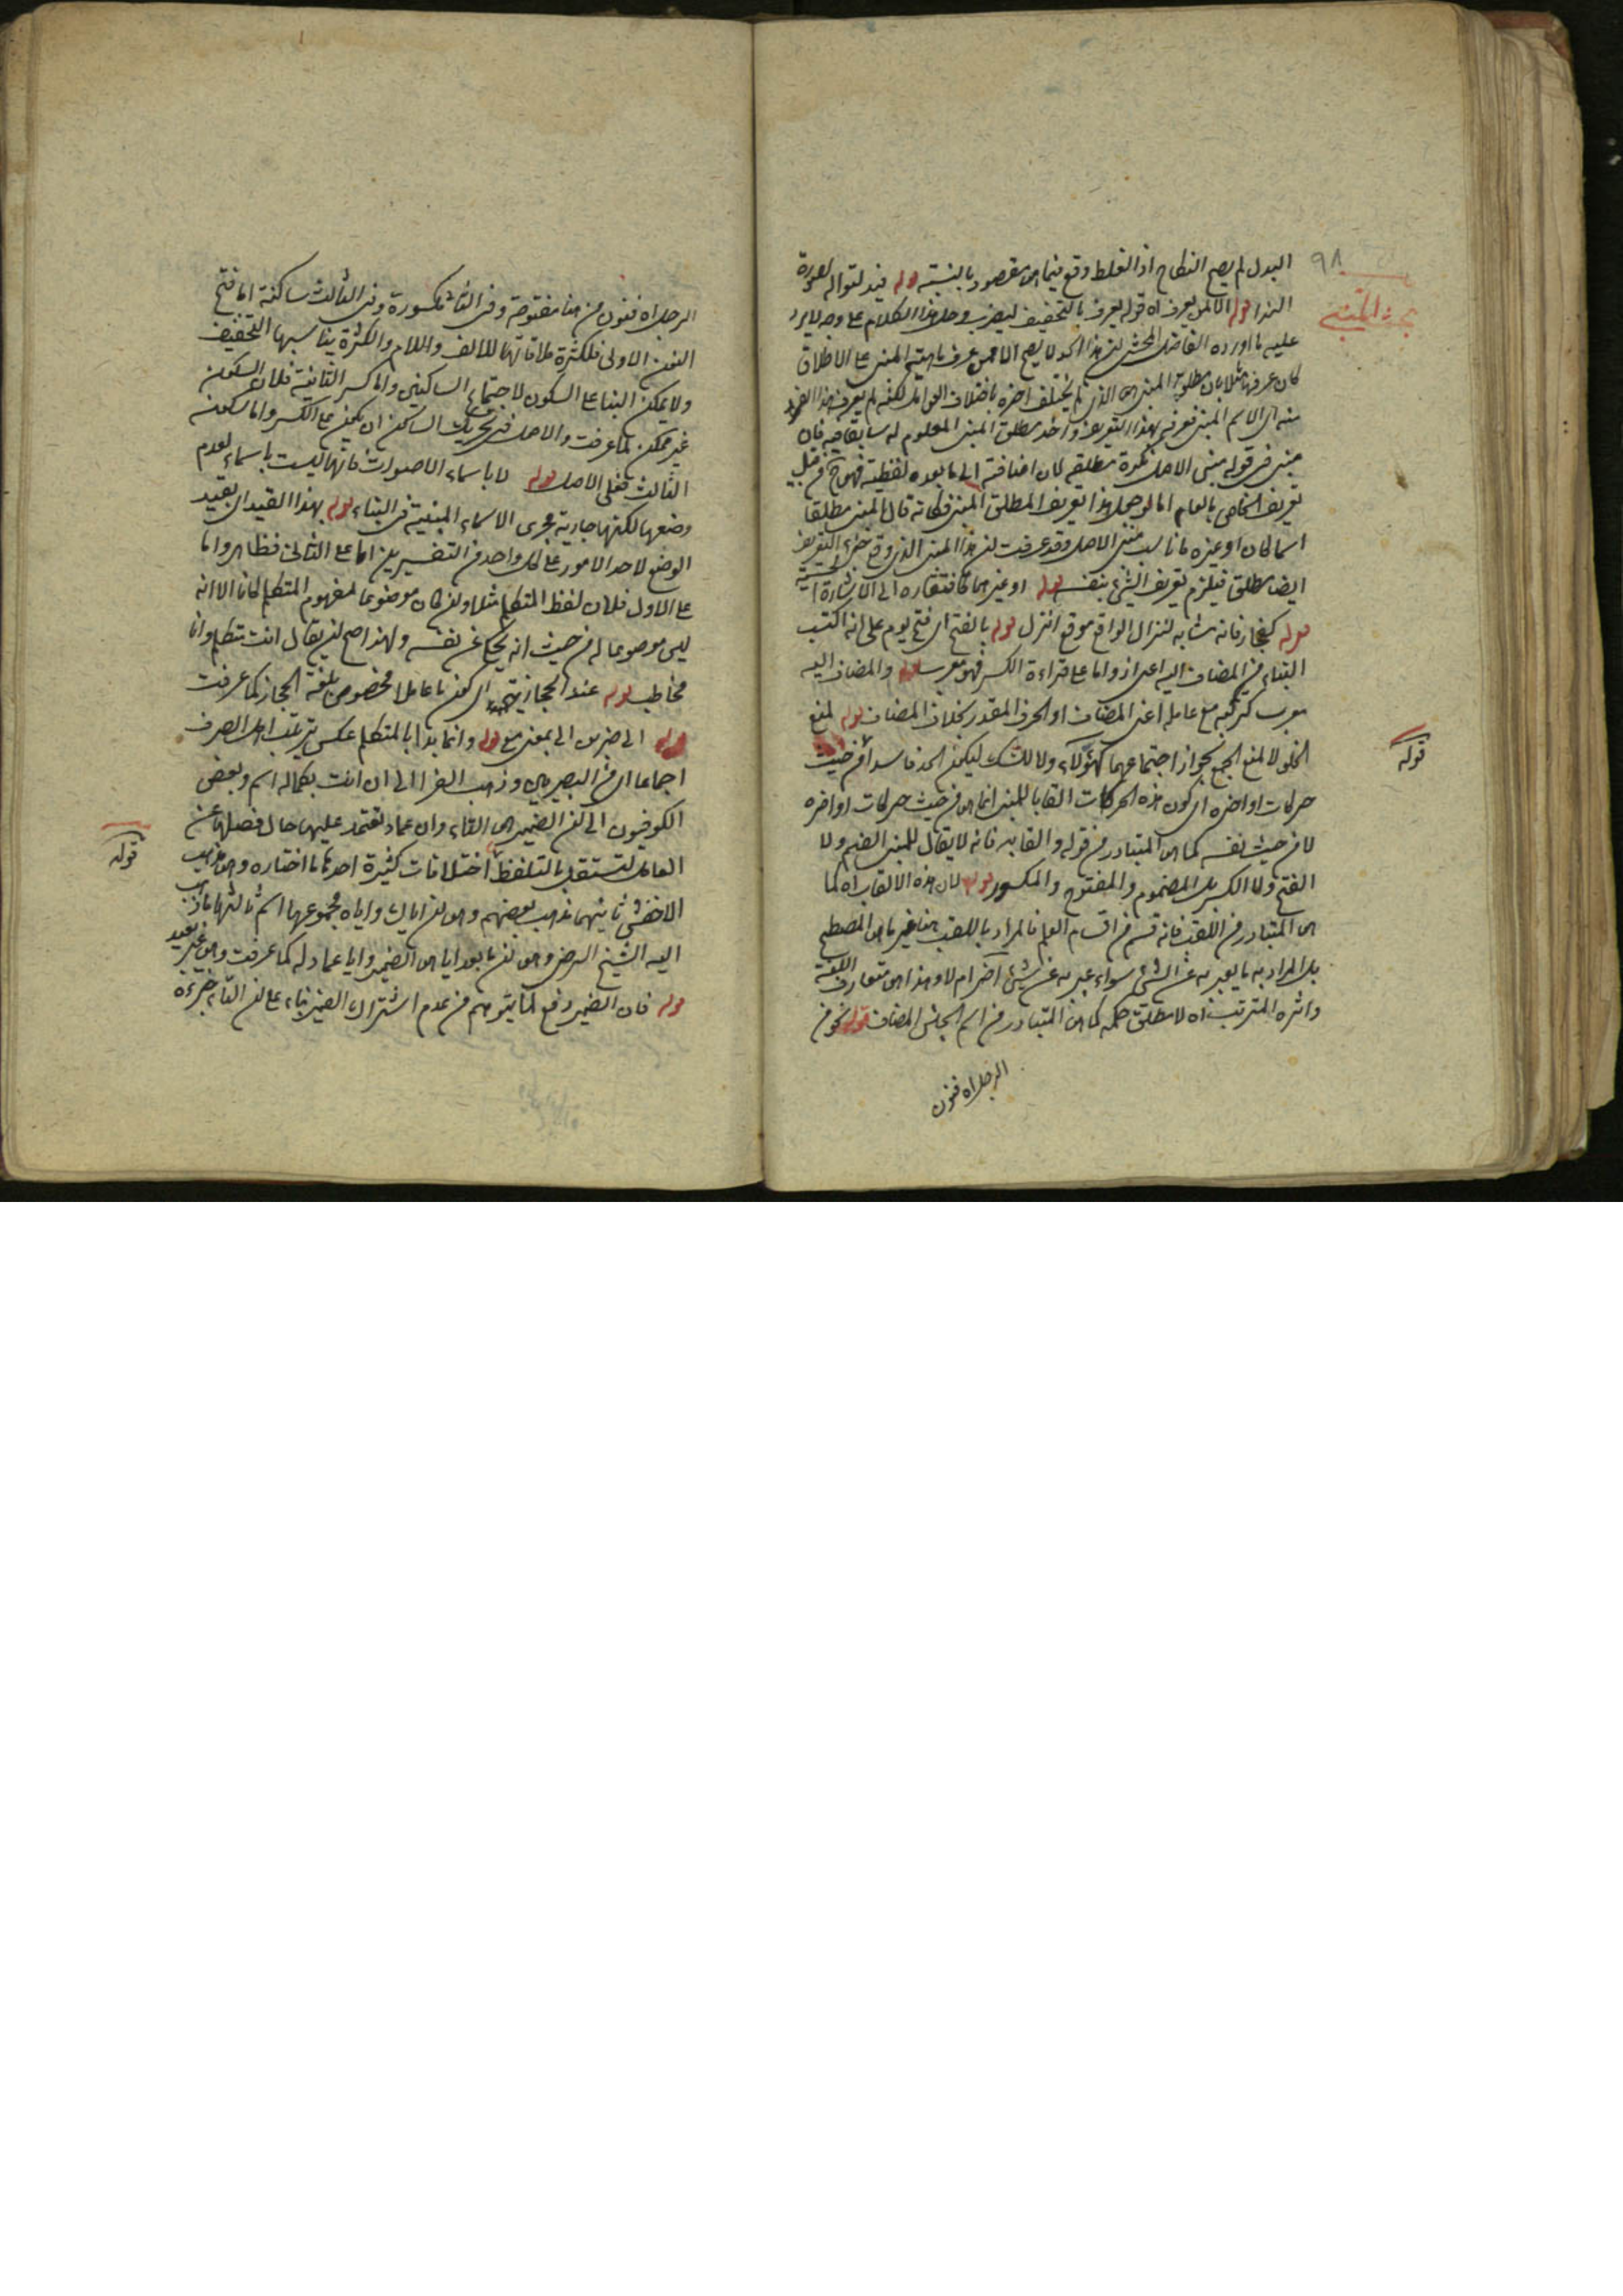 ٩٨
بحث المبني
البدل لم يصح النكاح اذ الغلط وقع فيما هو مقصود بالنسبة قوله قيد لتواله لصورة
النداء قوله الا لمن يعرف اه قوله يعرف بالتخفيف ليضرب وحمل هذا الكلام على وجه لا يرد
عليه ما اورده الفاضل المحشي لان هذا الحد لا يصح الا لمن عرف ماهية المبنى على الاطلاق
كان عرف مثلا بان مطلق المبنى هو الذي لم يختلف اخره باختلاف العوامل لكنه لم يعرف هذا الفرد
منه اي الاسم المبنى فعرفه بهذا التعريف واخذ مطلق المبنى المعلوم له سابقا فيه فان
مبنى في قوله مبنى الاصل نكرة مطلقة لان اضافته الى ما بعده لفظية فهو ح من قبيل
تعريف الخاص بالعام اما لو حمل هذا تعريف المطلق المبنى فكانه قال المبنى مطلقا
اسما كان او غيره ما ناسب مبنى الاصل وقد عرفت ان هذا المبنى الذي وقع جزء التعريف
ايضا مطلق فيلزم تعريف الشئ بنفسه قوله او غيرهما كافتقاره الى الاشارة الحسية
قوله كفجار فانه مشابه لنزال الواقع موقع انزل قوله بالفتح اي فتح يوم على انه اكتسب
البناء من المضاف اليه اعنى اذ واما على قراءة الكسر فهو معرب قوله والمضاف اليه
معرب لتركبه مع عامله اعنى المضاف او الحرف المقدر بخلاف المضاف قوله لمنع
الخلو لا لمنع الجمع لجواز اجتماعهما كهؤلاء ولا للشك ليكون الحد فاسدا من حيث
حركات اواخره اي كون هذه الحركات القابا للمبنى انما هو من حيث حركات اواخره
لا من حيث نفسه كما هو المتبادر من قوله والقابه فانه لا يقال للمبنى الضم ولا
الفتح ولا الكسر بل المضموم والمفتوح والمكسور قوله لان هذه الالقاب اه كما
هو المتبادر من اللقب فانه قسم من اقسام العلم فالمراد باللقب هنا غير ما هو المصطلح
بل المراد به ما يعبر به عن الشئ سواء عبر به عن شئ اخر ام لا وهذا هو متعارف اللغة
واثره المترتب اه لا مطلق حكمه كما هو المتبادر من اسم الجنس المضاف قوله نحو من
الرجل اه فنون
قوله
الرجل اه فنون من هنا مفتوحة وفي الثانى مكسورة وفي الثالث ساكنة اما فتح
النون الاولى فلكثرة ملاقاتها للالف واللام والكثرة يناسبها التخفيف
ولا يمكن البناء على السكون لاجتماع الساكنين واما كسر الثانية فلان السكون
غير ممكن لما عرفت والاصل في تحريك الساكن ان يكون على الكسر واما سكون
الثالث فعلى الاصل قوله لا باسماء الاصوات فانها ليست باسماء لعدم
وضعها لكنها جارية مجرى الاسماء المبنية في البناء قوله بهذا القيد اي بقيد
الوضع لاحد الامور على كل واحد من التفسيرين اما على الثانى فظاهر واما
على الاول فلان لفظ المتكلم مثلا وان كان موضوعا لمفهوم المتكلم كانا الا انه
ليس موضوعا له من حيث انه يحكى عن نفسه ولهذا صح ان يقال انت متكلم وانا
مخاطب قوله عند الحجازيين اي كون ما عاملا مخصوص بلغة الحجاز كما عرفت
قوله الى ضربن الى بمعنى مع قوله وانما بدا بالمتكلم عكس ترتيب اهل الصرف
اجماعا اي من البصريين وذهب الفراء الى ان انت بكماله اسم وبعض
الكوفيون الى ان الضمير هو التاء وان عماد تعتمد عليها حال فصلها عن
العامل لتستقل بالتلفظ اختلافات كثيرة احدها ما اختاره وهو مذهب
الاخفش ثانيهما مذهب بعضهم وهو ان اياك واياه مجموعها اسم ثالثها ما ذهب
اليه الشيخ الرضى وهو ان ما بعد ايا هو الضمير وايا عماد له كما عرفت وهو غير بعيد
قوله فان الضمير دفع لما يتوهم من عدم اشتراك الضمير بناء على ان التاء جزءه
قوله